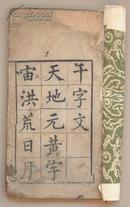 千字文
天地元黃宇
宙洪荒日月